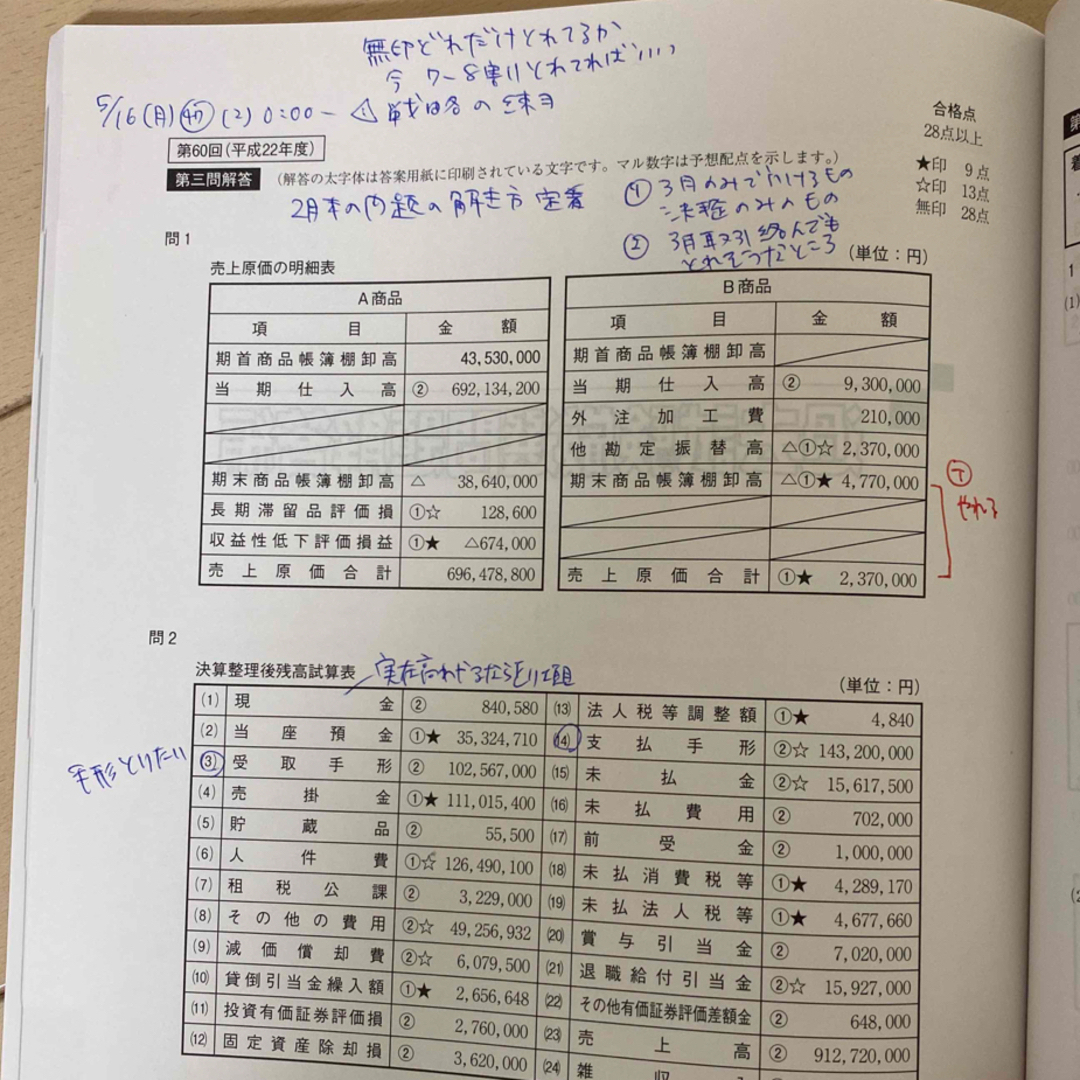 無印どれだけとれてるか
今 7〜8割とれてればいい
5/16(月) (2) 0:00〜 戦略の練習
合格点
28点以上
★印 9点
☆印 13点
無印 28点
第60回(平成22年度)
第三問解答 (解答の太字体は答案用紙に印刷されている文字です。マル数字は予想配点を示します。)
2月末の問題の解き方 定着
① 3月のみでいけるもの
決整のみのもの
② 3月取引絡んでも
とれそうなところ
問1
売上原価の明細表 (単位:円)
A商品 B商品
項目 金額 項目 金額
期首商品帳簿棚卸高 43,530,000 期首商品帳簿棚卸高
当期仕入高 ② 692,134,200 当期仕入高 ② 9,300,000
外注加工費 210,000
他勘定振替高 △①☆ 2,370,000
期末商品帳簿棚卸高 △ 38,640,000 期末商品帳簿棚卸高 △①★ 4,770,000
やれる
長期滞留品評価損 ①☆ 128,600
収益性低下評価損益 ①★ △674,000
売上原価合計 696,478,800 売上原価合計 ①★ 2,370,000
問2
決算整理後残高試算表 (単位:円)
(1) 現金 ② 840,580 (13) 法人税等調整額 ①★ 4,840
(2) 当座預金 ①★ 35,324,710 (14) 支払手形 ②☆ 143,200,000
手形とりたい
(3) 受取手形 ② 102,567,000 (15) 未払金 ②☆ 15,617,500
(4) 売掛金 ①★ 111,015,400 (16) 未払費用 ② 702,000
(5) 貯蔵品 ② 55,500 (17) 前受金 ② 1,000,000
(6) 人件費 ①☆ 126,490,100 (18) 未払消費税等 ①★ 4,289,170
(7) 租税公課 ② 3,229,000 (19) 未払法人税等 ①★ 4,677,660
(8) その他の費用 ②☆ 49,256,932 (20) 賞与引当金 ② 7,020,000
(9) 減価償却費 ②☆ 6,079,500 (21) 退職給付引当金 ②☆ 15,927,000
(10) 貸倒引当金繰入額 ①★ 2,656,648 (22) その他有価証券評価差額金 ② 648,000
(11) 投資有価証券評価損 ② 2,760,000 (23) 売上高 ② 912,720,000
(12) 固定資産除却損 ② 3,620,000 (24) 雑収入